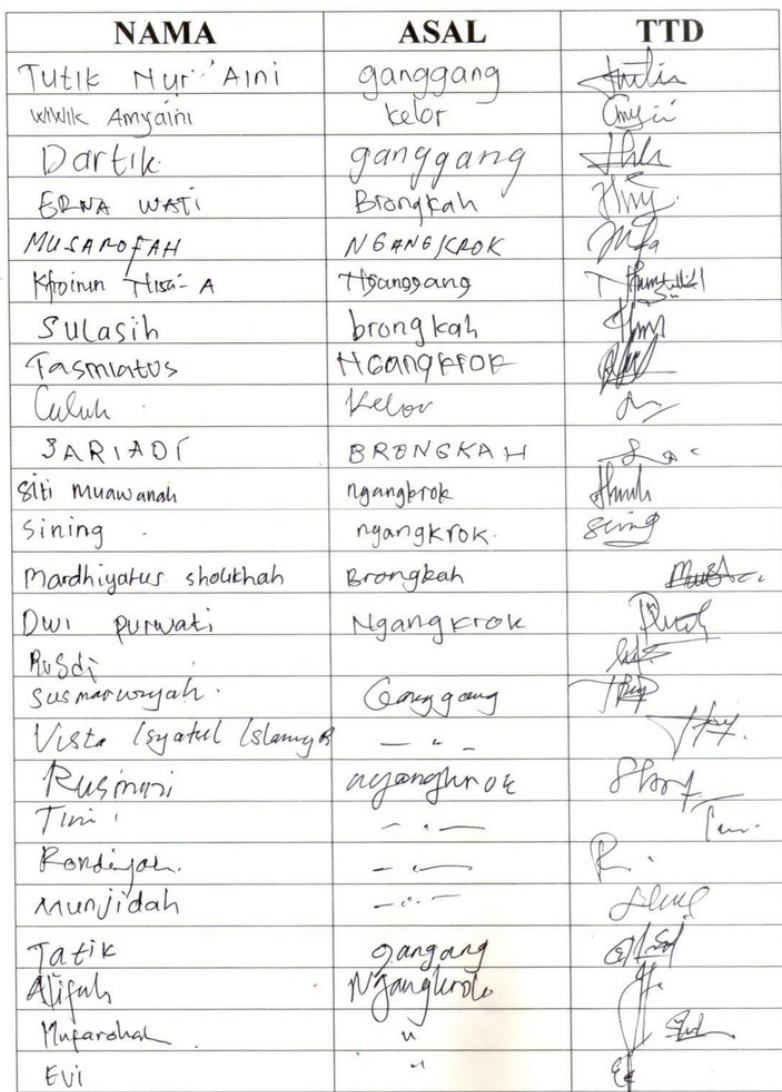 NAMA ASAL TTD
Tutik Nur'Aini ganggang
Wiwik Amyaini kelor
Dartik ganggang
ERNA WATI Brongkah
MUSAROFAH NGANGKROK
Khoirun Nisa'- A Ngganggang
Sulasih brongkah
Tasmiatus NGangkrok
Culuk Kelor
SARIADI BRONGKAH
Siti muawanah ngangkrok
Sining ngangkrok. Sining
Mardhiyatus sholikhah Brongkah
Dwi purwati Ngangkrok
Rusdi
Susmaruwiyah. Ganggang
Vista Isyatul Islamiyah — " —
Rusmini ngangkrok
Tini — " —
Rondiyah. — " —
Munjidah — " —
Tatik gangang
Alifah Ngangkrok
Mufarohah "
EVI "